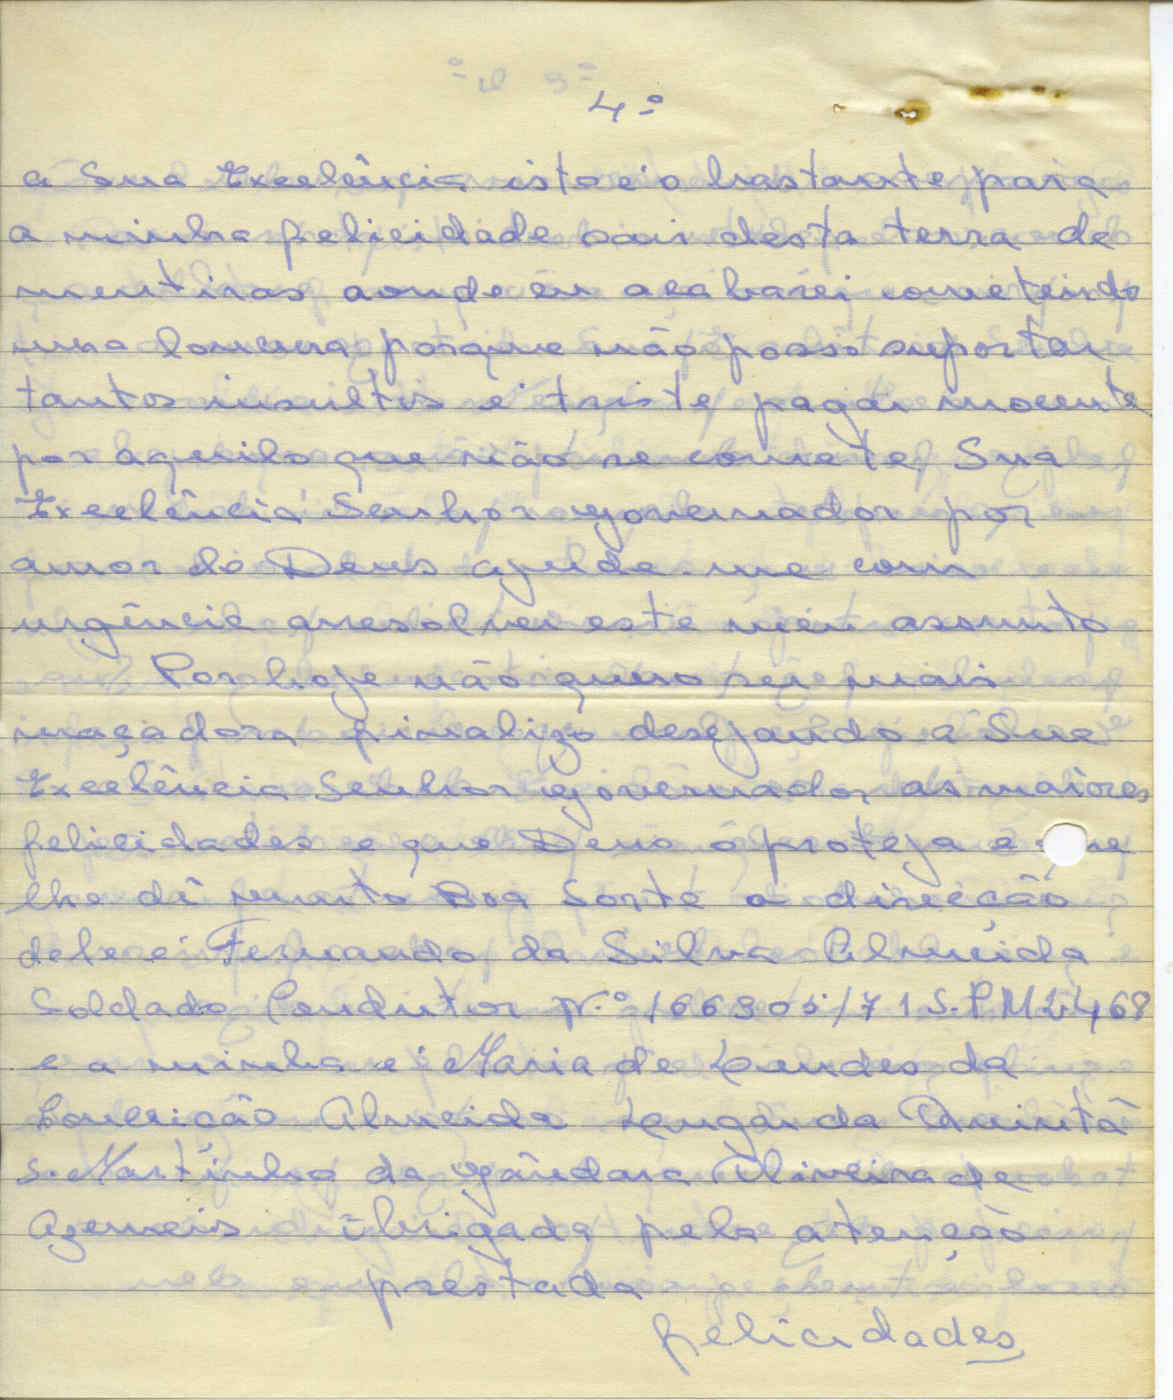 4º
a Sua Excelência isto e' o bastante para
a minha felicidade sair desta terra de
mentiras aonde eu acabarei cometendo
uma loucura porque não posso suportar
tantos insultos e' triste pagar inocente
por aquilo que não se comete, Sua
Excelência Senhor governador por
amor de Deus ajude-me com
urgência a resolver este meu assunto
Por hoje não quero ser mais
maçadora finalizo desejando a Sua
Excelência Senhor governador as maiores
felicidades e que Deus o proteja e que
lhe dê muita Boa Sorte a direcção
dele e' Fernando da Silva Almeida
Soldado Condutor Nº 166305/71 S.P.M 2468
e a minha e' Maria de Lurdes da
Conceição Almeida Lugar da Quintã
S. Martinho da Gândara Oliveira de
Azemeis Obrigada pela atenção
prestada
felicidades